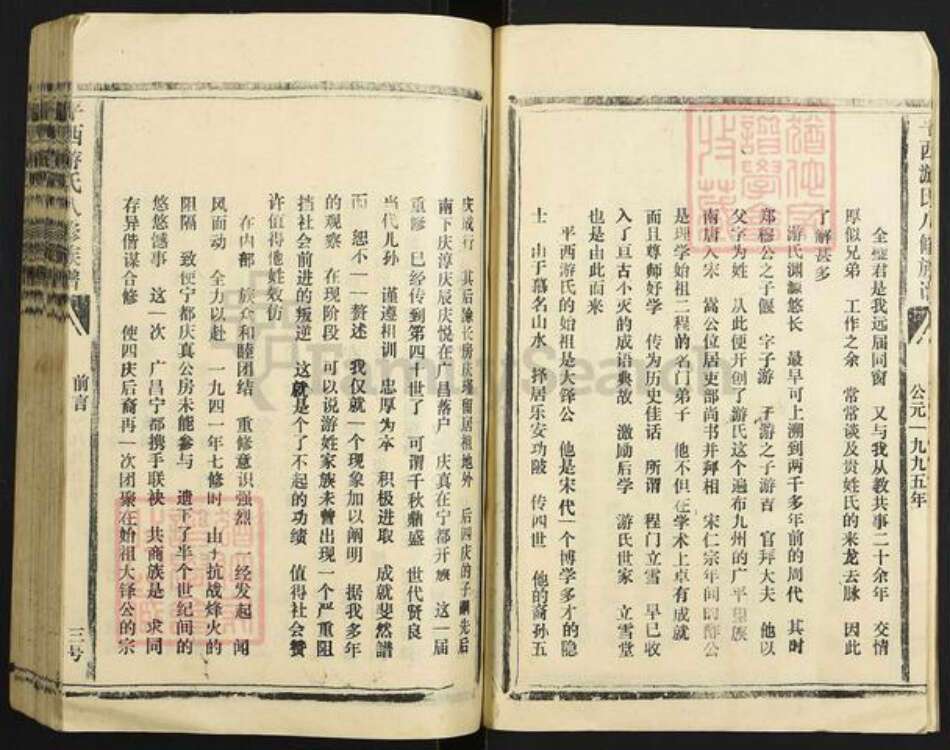 公元一九九五年
全璧君是我远届同窗　又与我从教共事二十余年　交情
厚似兄弟　工作之余　常常谈及贵姓氏的来龙去脉　因此
了解甚多
游氏渊源悠长　最早可上溯到两千多年前的周代　其时
郑穆公之子偃　字子游　子游之子游吉　官拜大夫　他以
父字为姓　从此便开创了游氏这个遍布九州的广平望族
南唐入宋　嵩公位居吏部尚书并拜相　宋仁宗年间的酢公
是理学始祖二程的名门弟子　他不但在学术上卓有成就
而且尊师好学　传为历史佳话　所谓　程门立雪　早已收
入了亘古不灭的成语典故　激励后学　游氏世家　立雪堂
也是由此而来
平西游氏的始祖是大铎公　他是宋代一个博学多才的隐
士　由于慕名山水　择居乐安功陂　传四世　他的裔孙五
庆成行　其后除长房庆瑾留居祖地外　后四庆的子嗣先后
南下庆淳庆辰庆悦在广昌落户　庆真在宁都开族　这一届
重修　已经传到第四十世了　可谓千秋鼎盛　世代贤良
当代儿孙　谨遵祖训　忠厚为本　积极进取　成就斐然谱
而　恕不一一赘述　我仅就一个现象加以阐明　据我多年
的观察　在现阶段　可以说游姓家族未曾出现一个严重阻
挡社会前进的叛逆　这就是个了不起的功绩　值得社会赞
许值得他姓效仿
在内部　族众和睦团结　重修意识强烈　一经发起　闻
风而动　全力以赴　一九四一年七修时　由于抗战烽火的
阻隔　致使宁都庆真公房未能参与　遗下了半个世纪间的
悠悠憾事　这一次　广昌宁都携手联袂　共商族是　求同
存异偕谋合修　使四庆后裔再一次团聚在始祖大铎公的宗
平西游氏八修族谱
前言
三号